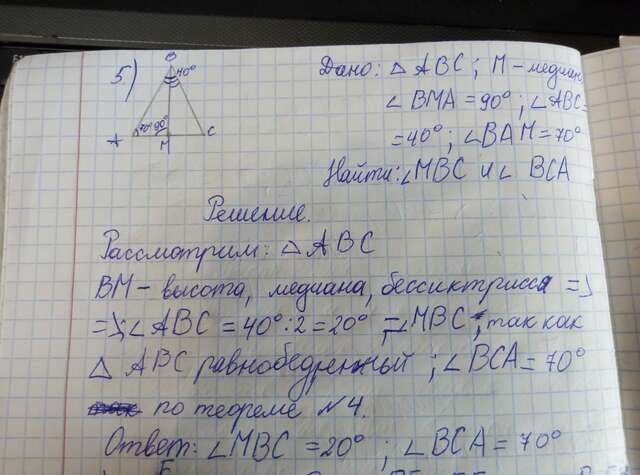 5)
B
40°
70° 90°
A
M
C
Дано: △ ABC; M - медиан
∠ BMA = 90°; ∠ABC=
= 40°; ∠BAM = 70°
Найти: ∠MBC и ∠ BCA
Решение.
Рассмотрим: △ ABC
BM - высота, медиана, бессиктрисса =>
=>; ∠ABC = 40°:2 = 20° = ∠MBC, так как
△ ABC равнобедренный; ∠BCA = 70°
по теореме №4.
Ответ: ∠MBC = 20° ; ∠BCA = 70°